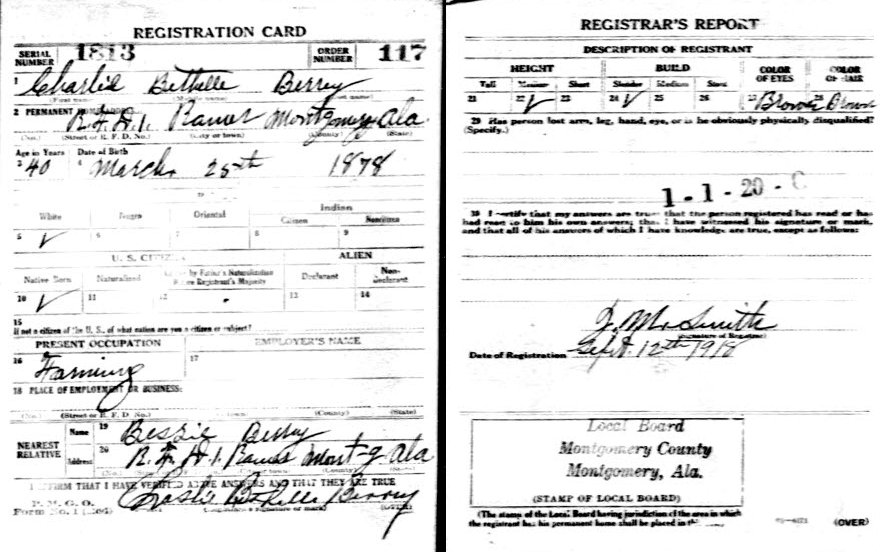 REGISTRATION CARD
SERIAL NUMBER 1813 ORDER NUMBER 117
1 Charlie Bethelle Berrey
(First name) (Middle name) (Last name)
2 PERMANENT HOME ADDRESS:
R.F.D.1. Ramer Montgomery Ala
(No.) (Street or R. F. D. No.) (City or town) (County) (State)
Age in Years Date of Birth
3 40 4 March 25th 1878
White Negro Oriental Indian
Citizen Noncitizen
5 ✓ 6 7 8 9
U. S. CITIZEN ALIEN
Native Born Naturalized by Father's Naturalization Before Registrant's Majority Declarant Non-declarant
10 ✓ 11 12 13 14
15
If not a citizen of the U. S., of what nation are you a citizen or subject?
PRESENT OCCUPATION EMPLOYER'S NAME
16 Farming 17
18 PLACE OF EMPLOYMENT OR BUSINESS:
(No.) (Street or R. F. D. No.) (City or town) (County) (State)
NEAREST RELATIVE
Name 19 Bessie Berrey
Address 20 R.F.D.1. Ramer Mont-g Ala
I AFFIRM THAT I HAVE VERIFIED ABOVE ANSWERS AND THAT THEY ARE TRUE
P. M. G. O.
Form No. 1 (Red) Charlie Bethelle Berrey
(Registrant's signature or mark) (OVER)
REGISTRAR'S REPORT
DESCRIPTION OF REGISTRANT
HEIGHT BUILD COLOR OF EYES COLOR OF HAIR
Tall Medium Short Slender Medium Stout
21 22 ✓ 23 24 ✓ 25 26 27 Brown 28 Brown
29 Has person lost arm, leg, hand, eye, or is he obviously physically disqualified?
(Specify.)
1-1-20-C
30 I certify that my answers are true; that the person registered has read or has
had read to him his own answers; that I have witnessed his signature or mark,
and that all of his answers of which I have knowledge are true, except as follows:
J. M. Smith
(Signature of Registrar)
Date of Registration Sept. 12th 1918
Local Board
Montgomery County
Montgomery, Ala.
(STAMP OF LOCAL BOARD)
(The stamp of the Local Board having jurisdiction of the area in which
the registrant has his permanent home shall be placed in
(OVER)